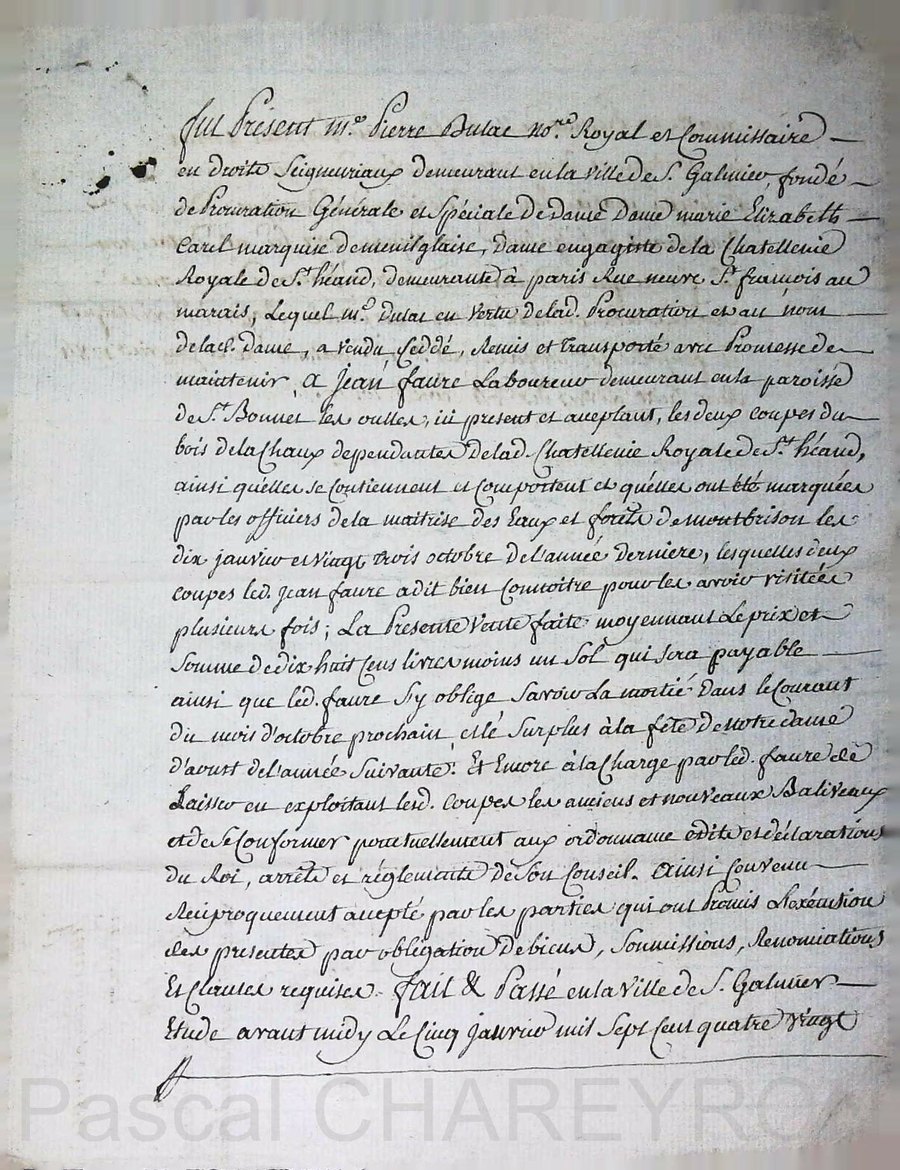 fut Présent m.e Pierre Dulac no.re Royal et Commissaire
en droits Seigneuriaux demeurant en la ville de S. Galmier, fondé
de Procuration Générale et Spéciale de Dame Dame marie Elizabeth
Carel marquise demenilglaise, Dame engagiste de la Chatellenie
Royale de S.t héand, demeurante à paris Rue neuve S.t françois au
marais, Lequel m.e Dulac en Vertu delad. Procuration et au nom
delad. Dame, a vendu, Ceddé, Remis et Transporté avec Promesse de
maintenir, a jean faure Laboureur demeurant en la paroisse
de S.t Bonnet les oulles, ici present et acceptant, les deux coupes du
bois de la Chaux dependantes delad. Chatellenie Royale de S.t héand,
ainsi qu'elles se Contiennent et Comportent et qu'elles ont été marquées
par les officiers de la maitrise des Eaux et forêts de montbrison les
dix janvier et vingt trois octobre de l'année derniere, lesquelles deux
coupes led. jean faure a dit bien Connoitre pour les avoir visitées
plusieurs fois; La Presente Vente faite moyennant Le prix et
Somme de dix huit Cens livres moins un Sol qui sera payable
ainsi que led. faure s'y oblige Savoir La moitié Dans le Courant
du mois d'octobre prochain, et le Surplus à la fête de notre dame
d'aoust de l'année Suivante. Et Encore à la Charge par led. faure de
Laisser en exploitant lesd. Coupes les anciens et nouveaux Baliveaux
et de se Conformer ponctuellement aux ordonnance édits et déclarations
du Roi, arrêts et réglements de Son Conseil. ainsi Convenu
Réciproquement accepté par les parties qui ont Promis L'exécution
des presentes par obligation De biens, Soumissions, Renonciations
Et Clauses requises. fait & Passé en la Ville de S. Galmier
Etude avant midy Le Cinq janvier mil Sept Cent quatre vingt
Pascal CHAREYRON